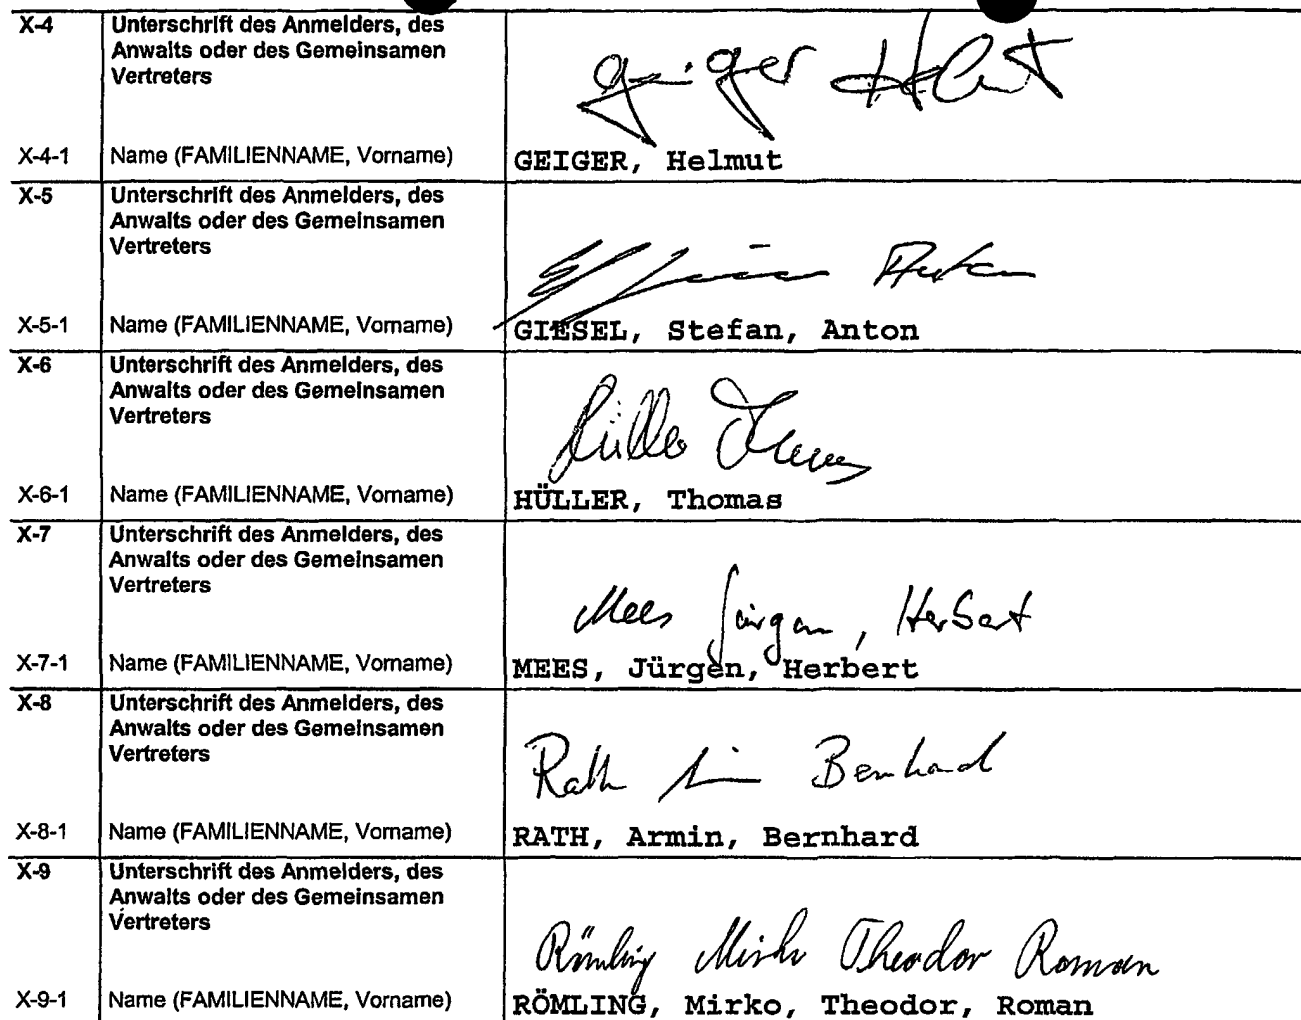 X-4 Unterschrift des Anmelders, des
Anwalts oder des Gemeinsamen
Vertreters
geiger Helmut
X-4-1 Name (FAMILIENNAME, Vorname) GEIGER, Helmut
X-5 Unterschrift des Anmelders, des
Anwalts oder des Gemeinsamen
Vertreters
X-5-1 Name (FAMILIENNAME, Vorname) GIESEL, Stefan, Anton
X-6 Unterschrift des Anmelders, des
Anwalts oder des Gemeinsamen
Vertreters
Hüller Thomas
X-6-1 Name (FAMILIENNAME, Vorname) HÜLLER, Thomas
X-7 Unterschrift des Anmelders, des
Anwalts oder des Gemeinsamen
Vertreters
Mees Jürgen, Herbert
X-7-1 Name (FAMILIENNAME, Vorname) MEES, Jürgen, Herbert
X-8 Unterschrift des Anmelders, des
Anwalts oder des Gemeinsamen
Vertreters
Rath Armin Bernhard
X-8-1 Name (FAMILIENNAME, Vorname) RATH, Armin, Bernhard
X-9 Unterschrift des Anmelders, des
Anwalts oder des Gemeinsamen
Vertreters
Römling Mirko Theodor Roman
X-9-1 Name (FAMILIENNAME, Vorname) RÖMLING, Mirko, Theodor, Roman